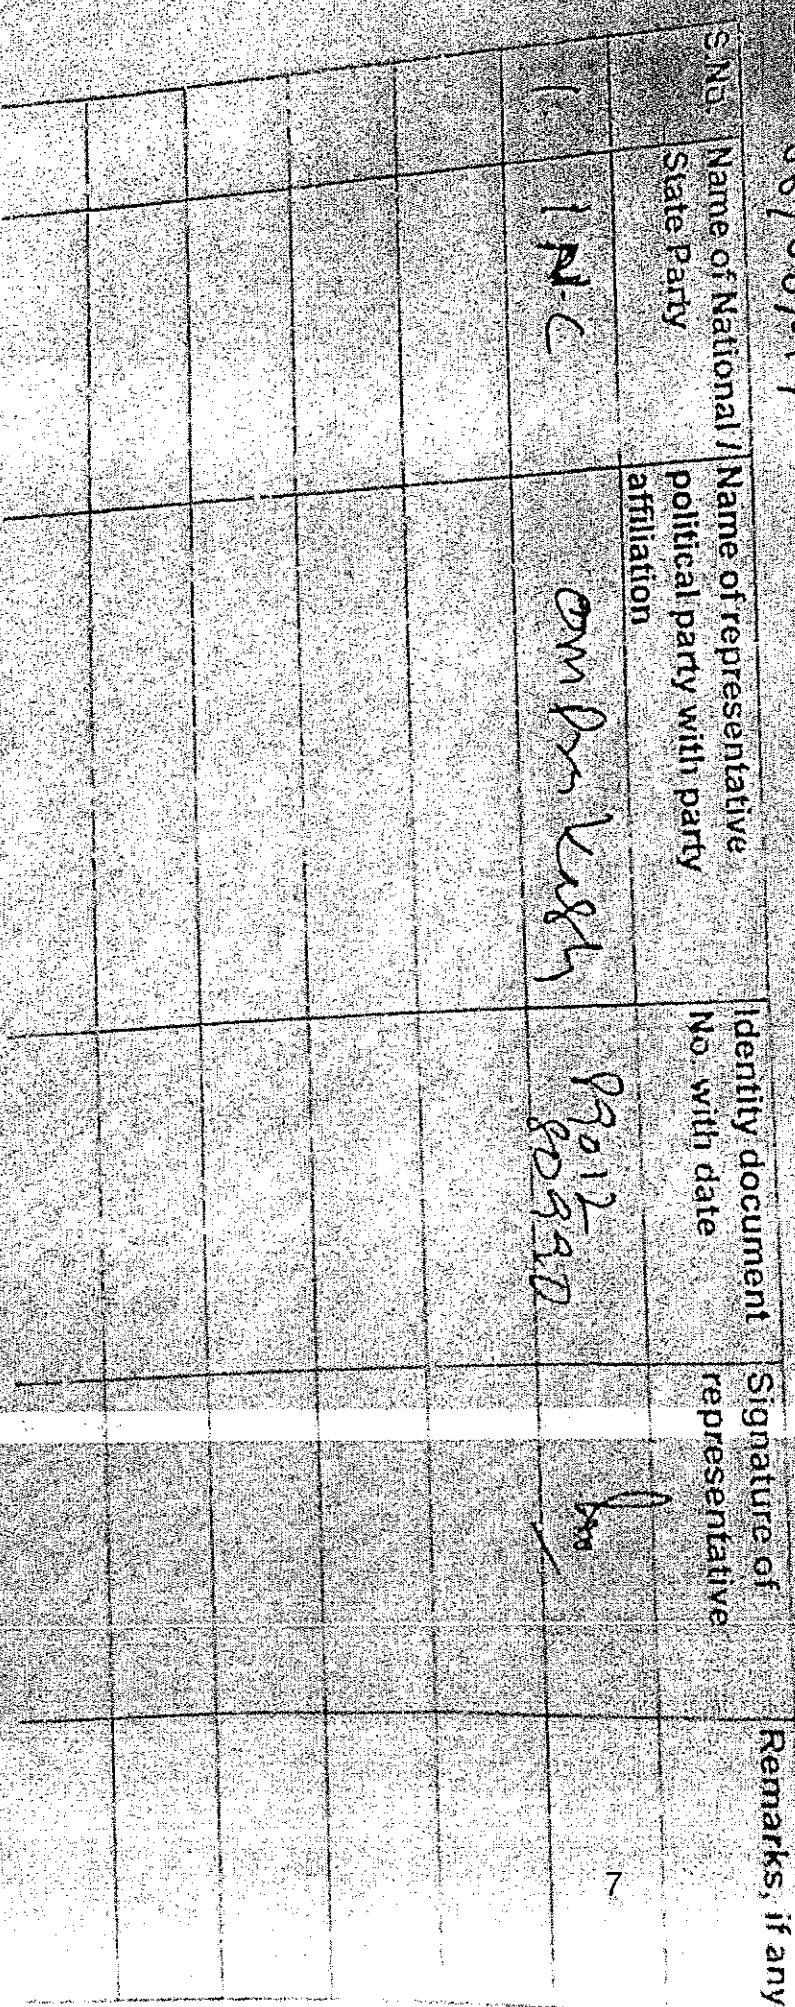 S.No.
Name of National /
State Party
Name of representative
political party with party
affiliation
Identity document
No. with date
Signature of
representative
Remarks, if any
1
INC
Om Prakash
7